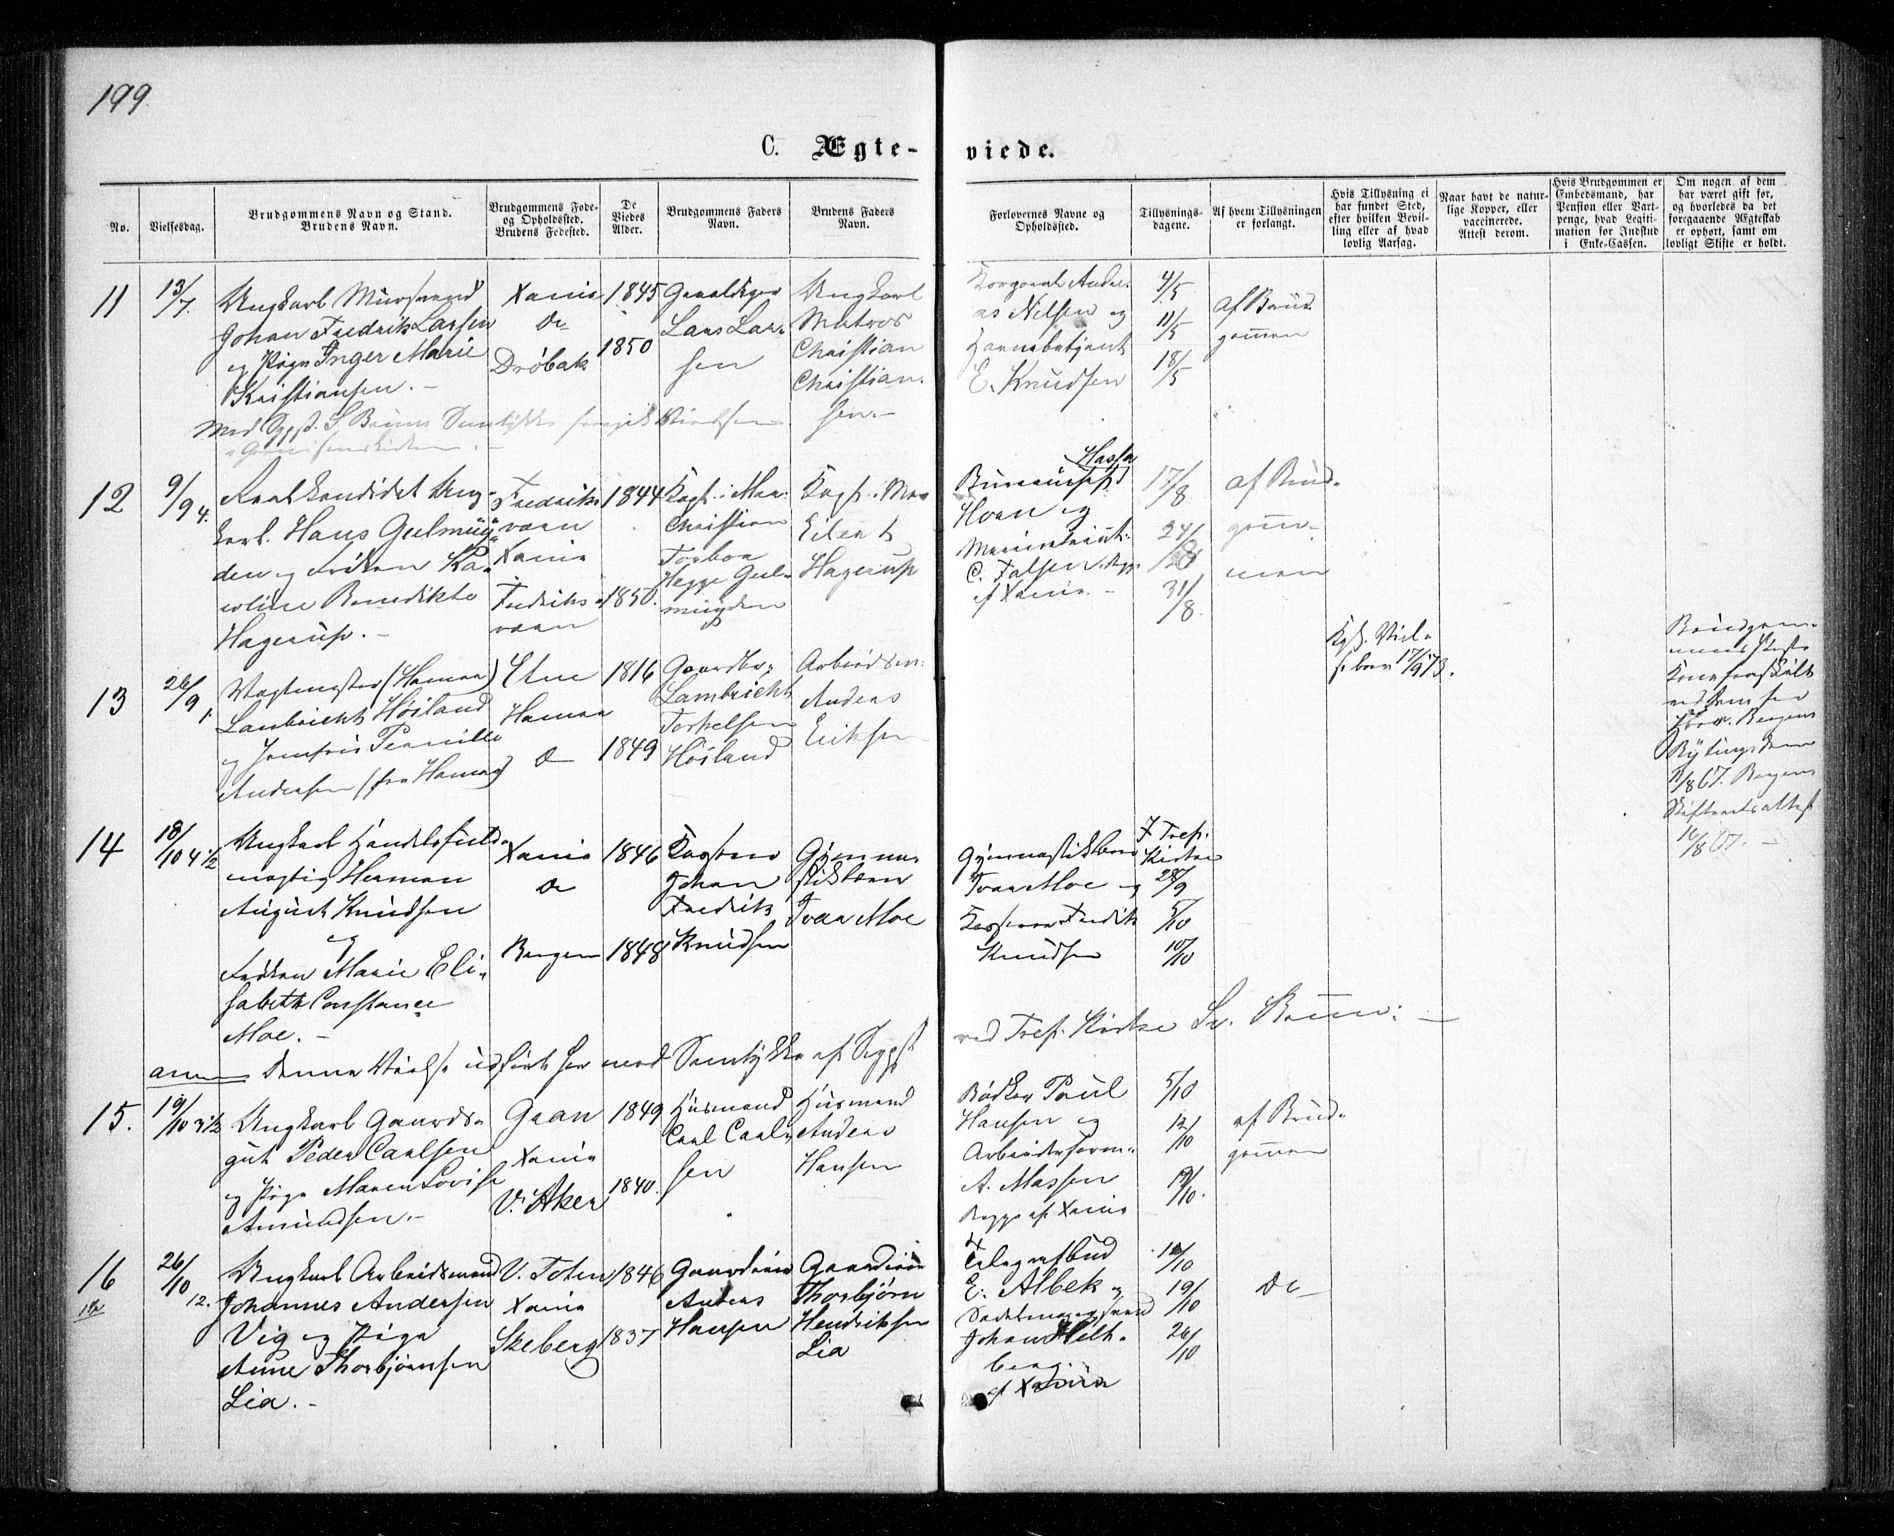 199.
C. Ægte-
viede.
No.
Vielsesdag.
Brudgommens Navn og Stand.
Brudens Navn.
Brudgommens Føde-
og Opholdssted.
Brudens Fødested.
De
Viedes
Alder.
Brudgommens Faders
Navn.
Brudens Faders
Navn.
Forlovernes Navne og
Opholdssted.
Tillysnings-
dagene.
Af hvem Tillysningen
er forlangt.
Hvis Tillysning ei
har fundet Sted,
efter hvilken Bevil-
ling eller af hvad
lovlig Aarsag.
Naar havt de natur-
lige Kopper, eller
vaccinerede.
Attest derom.
Hvis Brudgommen er
Embedsmand, har
Pension eller Vart-
penge, hvad Legiti-
mation for Indskud
i Enke-Cassen.
Om nogen af dem
har været gift før,
og hvorledes da det
foregaaende Ægteskab
er ophørt, samt om
lovligt Skifte er holdt.
11
13/7.
Ungkarl Murswend
Johan Fredrik Larsen
og Pige Inger Marie
Kristiansen. -
Xania
Do
Drøbak
1845
1850
Lars Lar-
sen
Ungkarl
Matros
Christian
Christian-
sen. -
Andre-
as Nilsen og
E. Knudsen
4/5
11/5
18/5
af Brud-
gommen
12
9/9 4.
Realkandidat Ung-
karl. Hans Geelmuy-
den og Frøken Ka-
roline Benedikte
Hagerup. -
Fredriks-
værn
Xania
Fredriks-
værn
1844
1850.
Kapt. i Mar.
Christian
Torber
Hegge Geel-
muyden
Kapt. i Mar
Eilert
Hagerup
Bureauchef
Horn og
C. Falsen, Begge
af Xania. -
17/8
24/8
31/8.
af Brud-
gom-
men
13
26/9 1.
Vagtmester (Hamar)
Lambricht Høiland
og Jomfru Pernille
Andersen (fra Hamar)
Etne
Hamar
Do
1816
1849
Gaardbr.
Lambricht
Torkelsen
Høiland
Arbeidsm.
Anders
Eriksen
Kgl. Viel-
sebrev 17/9 73.
Brudgom-
mens første
Kone fraskilt
ved Dom
Bergens
Bytingsdom
/8 67. Bergens
Skifteretsattest
16/8 67. -
14
18/10 4 1/2
Ungkarl Handelsfuld-
mægtig Herman
August Knudsen
og
Frøken Marie Eli-
sabeth Constance
Moe. -
Xania
Do
Bergen
1846
1848
Johan
Fredrik
Knudsen
Gymna-
stiklærer
Ivar Moe
Gymnastiklærer
Ivar Moe og
Kasserer Fredrik
Knudsen
I Tref.
Kirke
28/9
5/10
10/10
ved Tref. Kirke Sr. Bruun: -
anm Denne Vielse udført her med Samtykke af Sogpst
15.
19/10 3 1/2
Ungkarl Gaards-
gut Peder Carlsen
og Pige Maren Lovise
Amundsen. -
Gran
Xania
V. Aker
1849
1840.
Husmand
Carl Carl-
sen
Husmand
Anders
Hansen
Bødker Poul
Hansen og
Arbeidsform.
A. Massen
Begge af Xania
5/10
12/10
19/10.
af Brud-
gommen
16
26/10 12.
Ungkarl Arbeidsmand
Johannes Andersen
Vig og Pige
Anne Thorbjørnsen
Lia. -
V. Toten
Xania
Skeberg
1846
1837
Gaardeier
Anders
Hansen
Gaardeier
Thorbjørn
Hendriksen
Lia
Telegrafbud
E. Albek og
Sadelmagersvend
Johan Helt-
berg.
af Xania
12/10
19/10
26/10
Do